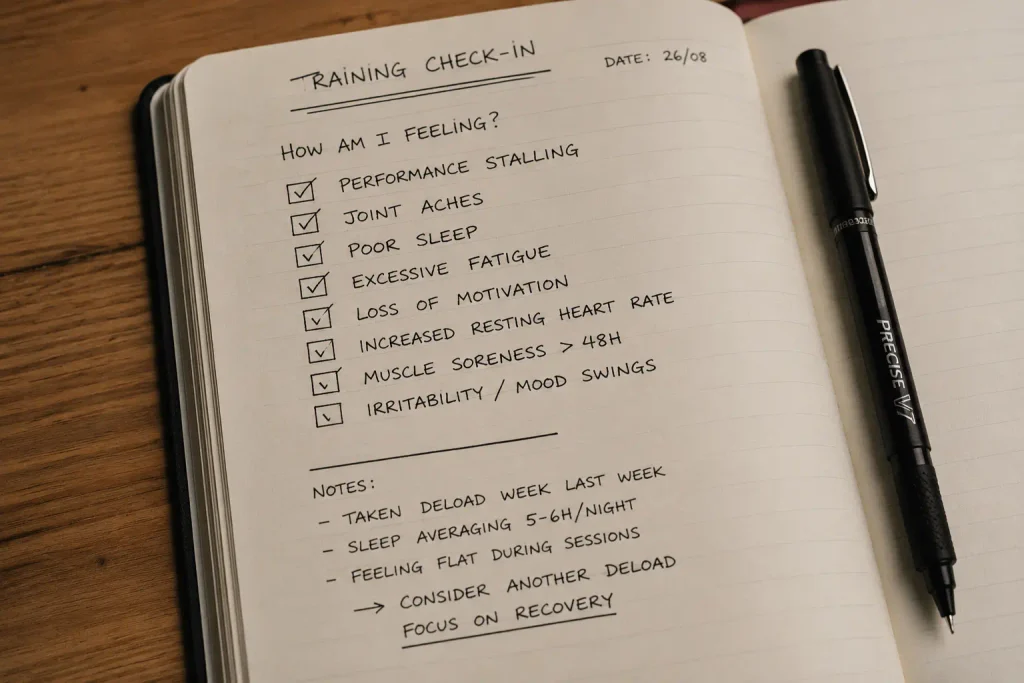 TRAINING CHECK-IN
DATE: 26/08
HOW AM I FEELING?
☑ PERFORMANCE STALLING
☑ JOINT ACHES
☑ POOR SLEEP
☑ EXCESSIVE FATIGUE
☑ LOSS OF MOTIVATION
☑ INCREASED RESTING HEART RATE
☑ MUSCLE SORENESS > 48H
☑ IRRITABILITY / MOOD SWINGS
NOTES:
- TAKEN DELOAD WEEK LAST WEEK
- SLEEP AVERAGING 5-6H/NIGHT
- FEELING FLAT DURING SESSIONS
→ CONSIDER ANOTHER DELOAD
FOCUS ON RECOVERY
PRECISE V7